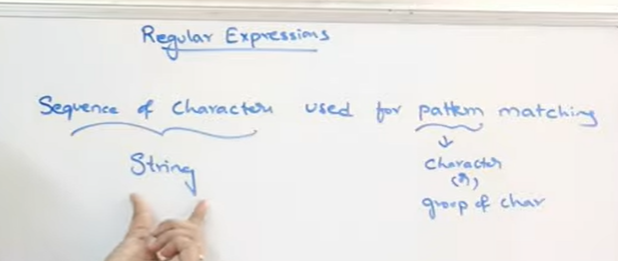 Regular Expressions
Sequence of Characters used for pattern matching
String
character
(or)
group of char